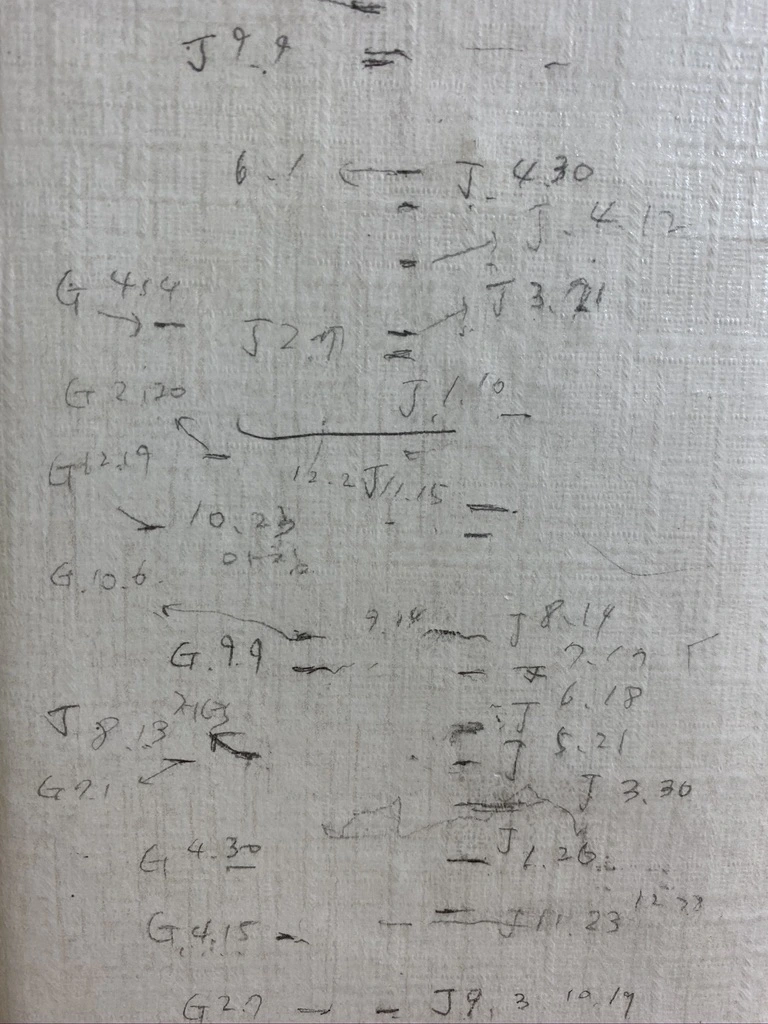 J 9.9
6.1 J. 4.30
J. 4.12
G 4.4 J 3.21
J 2.7
G 2.20 J.1.10
G 12.19 12.2 J 11.15
10.23
G.10.6
9.14 J 8.14
G.9.9 7.17
J 6.18
J 8.13
J 5.21
G 7.1 J 3.30
G 4.30 J 1.26
G.4.15 J 11.23 12.23
G 2.7 J 9.3 10.19